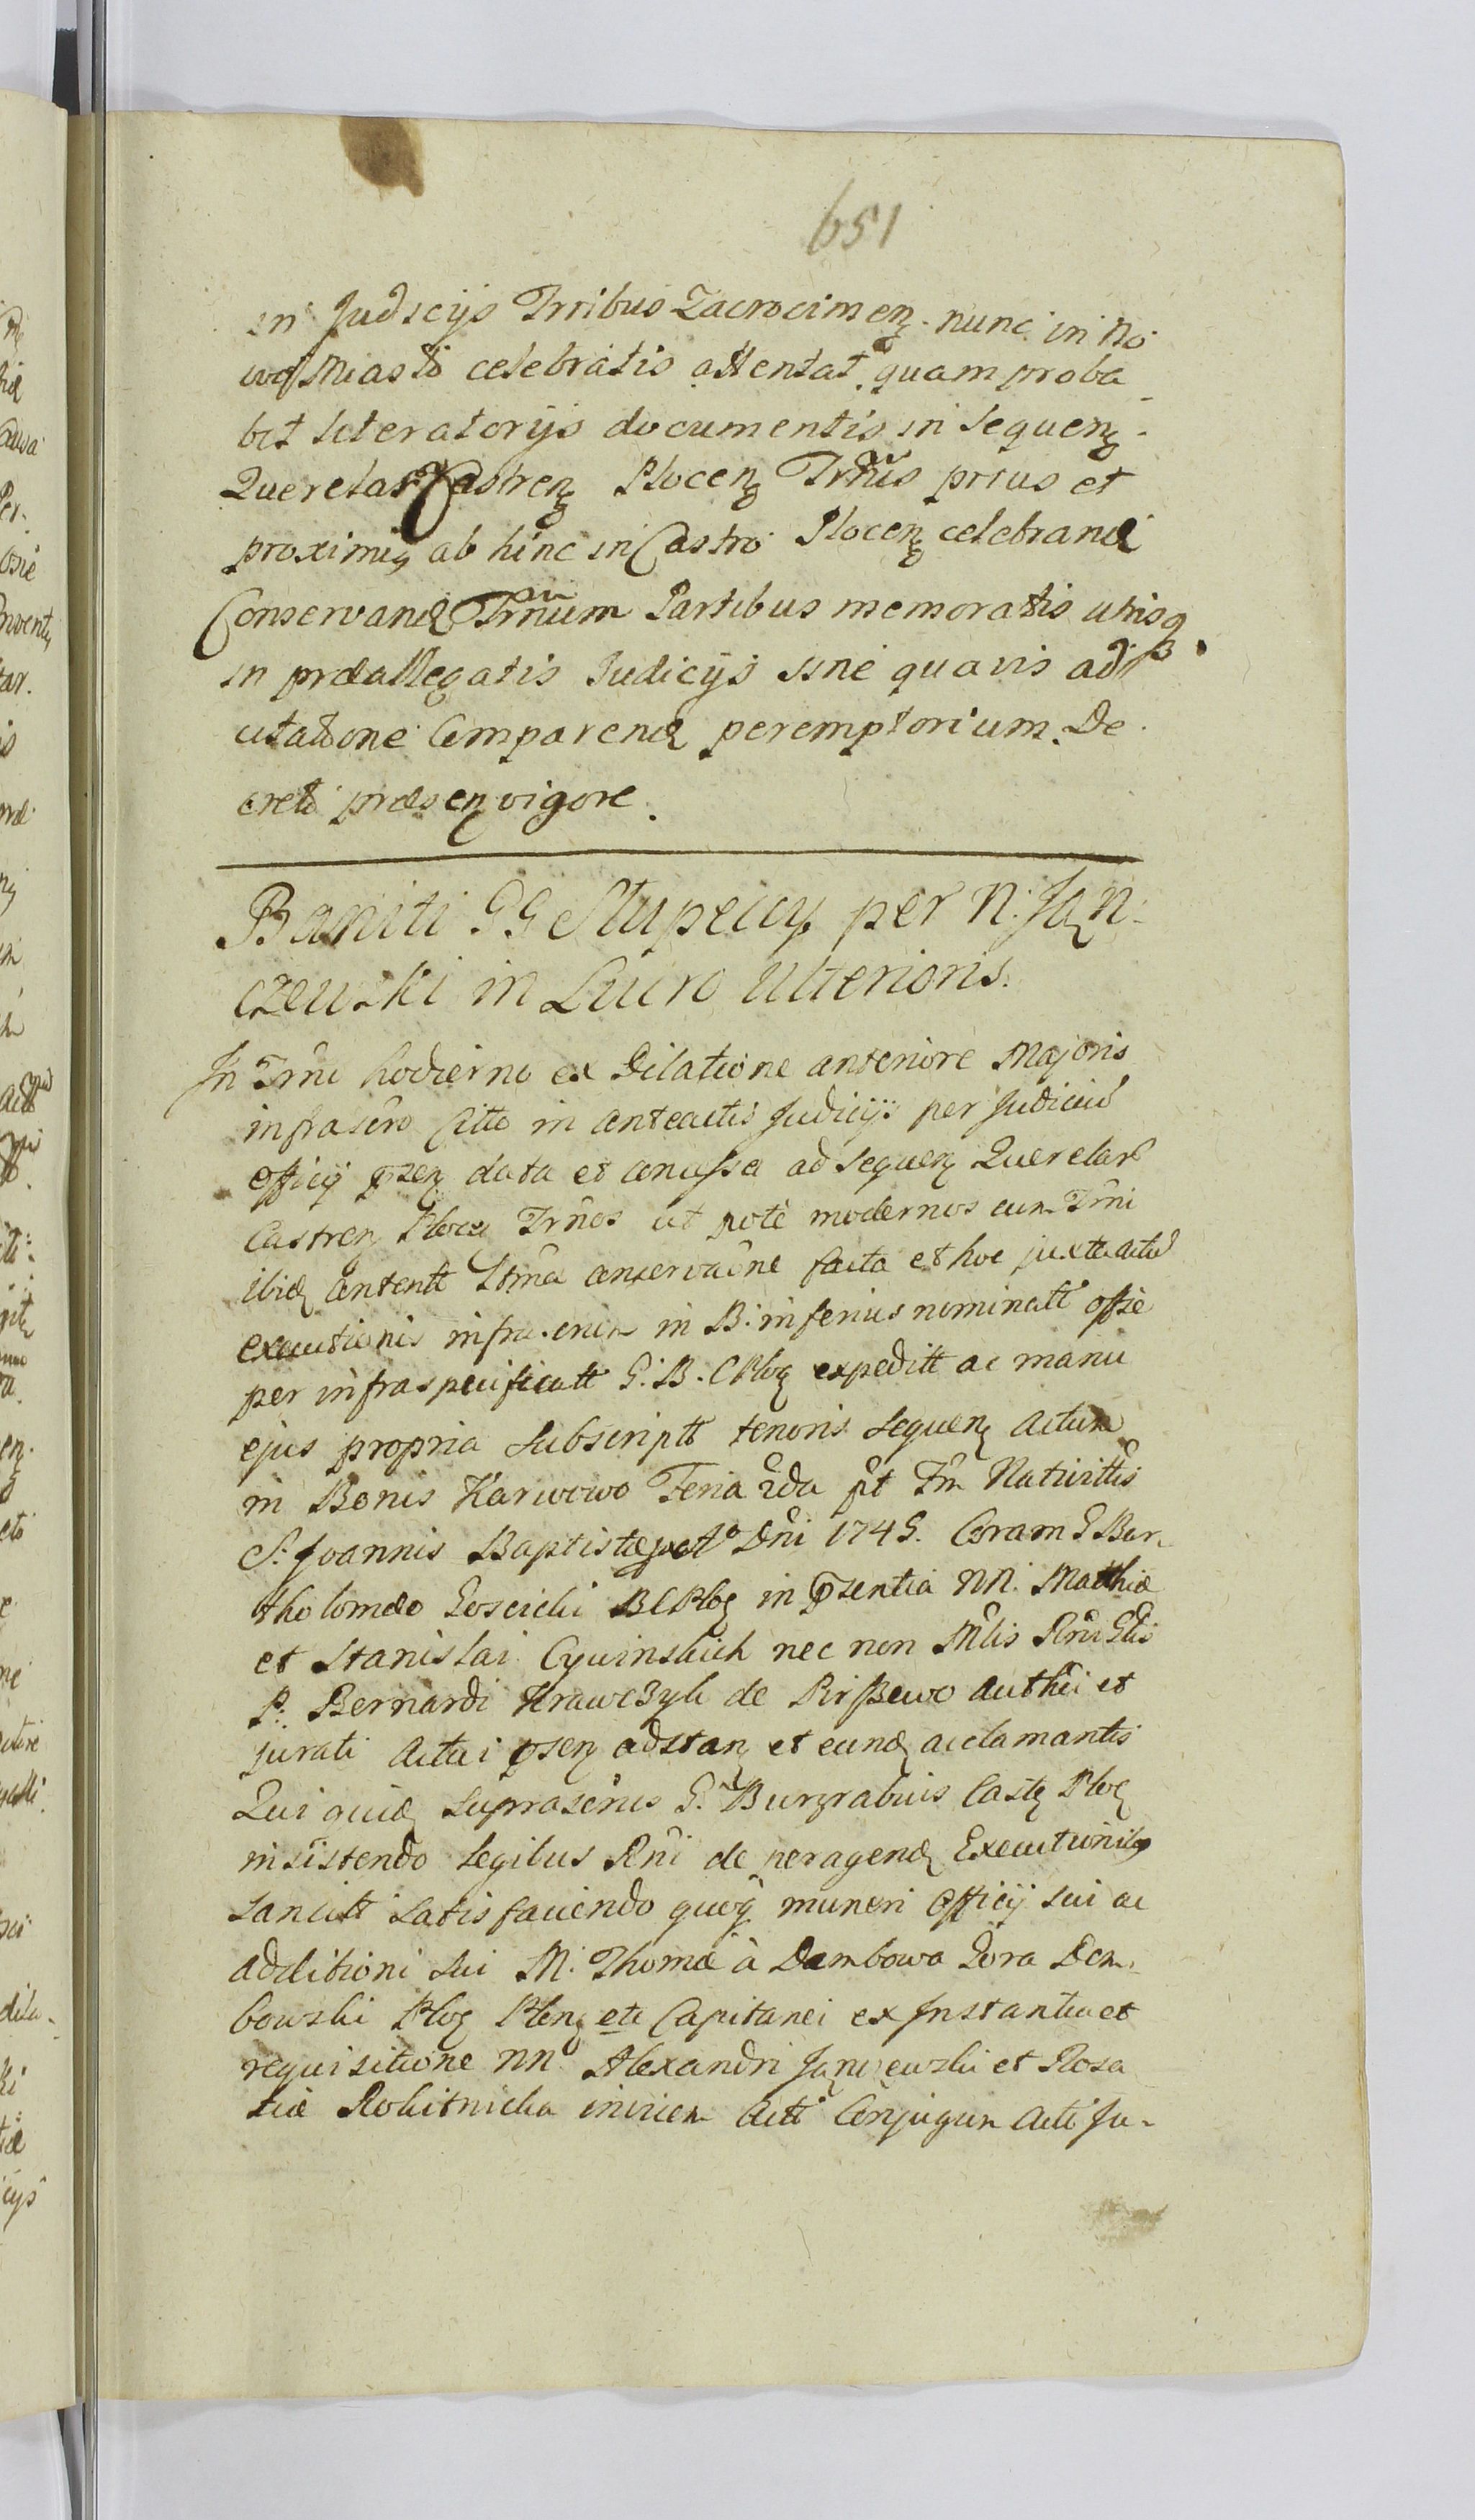 651
in Judicijs Trribus Zacrocimen. nunc in No
wo Miasto celebratis attentat quam proba
bit literatorijs documentis in sequen.
Querelar Castren Plocen Trnis prius et
proximis ab hinc in Castro Plocen celebrand
Conservand Trnum Partibus memoratis utrisq
in præallegatis Judicijs sine quavis ad
citatione Comparend peremptorium De
creti præsen vigore.
Baniti GG Słupeccy per N. Jan
czewski in Lucro Ulterioris.
In Trno hodierno ex Dilatione anteriore Majoris
infrascro Actto in anteactis Judicijs per Judiciu
officij psen data et concessa ad sequen Querelar
Castren Ploce Trnos ut pote modernos cum Trni
ibid content Stma conservaone facta et hoc juxta actu
executionis infra. in B. inferius nominatt offic
per infraspecificatt G. B. C Ploc expeditt ac manu
ejus propria subscriptt tenoris sequen Actum
in Bonis Karwowo Feria 2da pt Fm Nativittis
S. Joannis Baptistæ Ao Dni 1745. Coram G Bar
tholomeo Goscicki BCPloc in psentia NN. Matthiæ
et Stanislai Cywinskich nec non Mlis Rni Glis
P. Bernardi Krawczyk de Authci et
jurati Actui psen adstan et eund acclamantis
Qui quid suprascrius G. Burgrabius Castr Ploc
insistendo legibus Rni de peragend Executionibq
sancitt satisfaciendo quoq muneri Officij sui ac
additioni sui M. Thomæ à Dambowa Gora Dem
bowski Ploc Plen etc Capitanei ex Instantia et
requisitione NN. Alexandri Janczewski et Rosa
liæ Rokitnicka invicem Actt Conjugum Acti Ju-